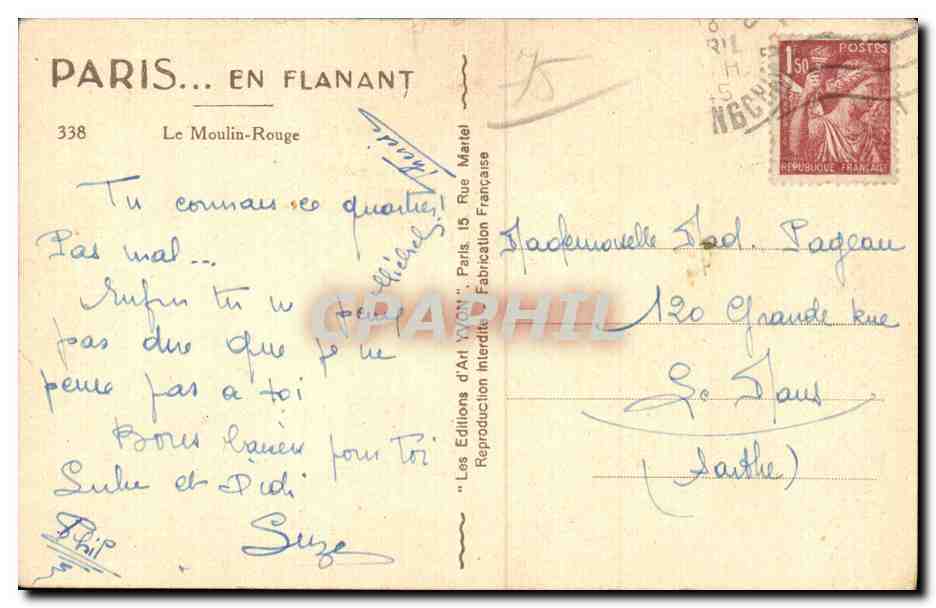 PARIS... EN FLANANT
338 Le Moulin-Rouge
Tu connais ce quartier!
Pas mal...
Enfin tu ne peux
pas dire que je ne
pense pas à toi
Bons baisers pour toi
et Didi
Suze
Phip
Michel
"Les Editions d'Art YVON", Paris, 15 Rue Martel
Reproduction Interdite - Fabrication Française
CPAPHIL
75
POSTES
1F50
REPUBLIQUE FRANÇAISE
Mademoiselle Mad. Pageau
120 Grande Rue
Le Mans
(Sarthe)